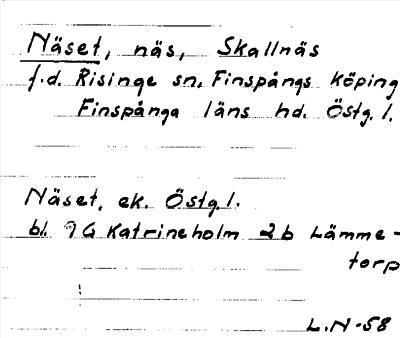 Näset, näs, Skallnäs
f.d. Risinge sn. Finspångs köping
Finspånga läns hd. Östg. l.
Näset, ek. Östg. l.
bl. 9G Katrineholm 2b Lämme-
torp
L.N-58